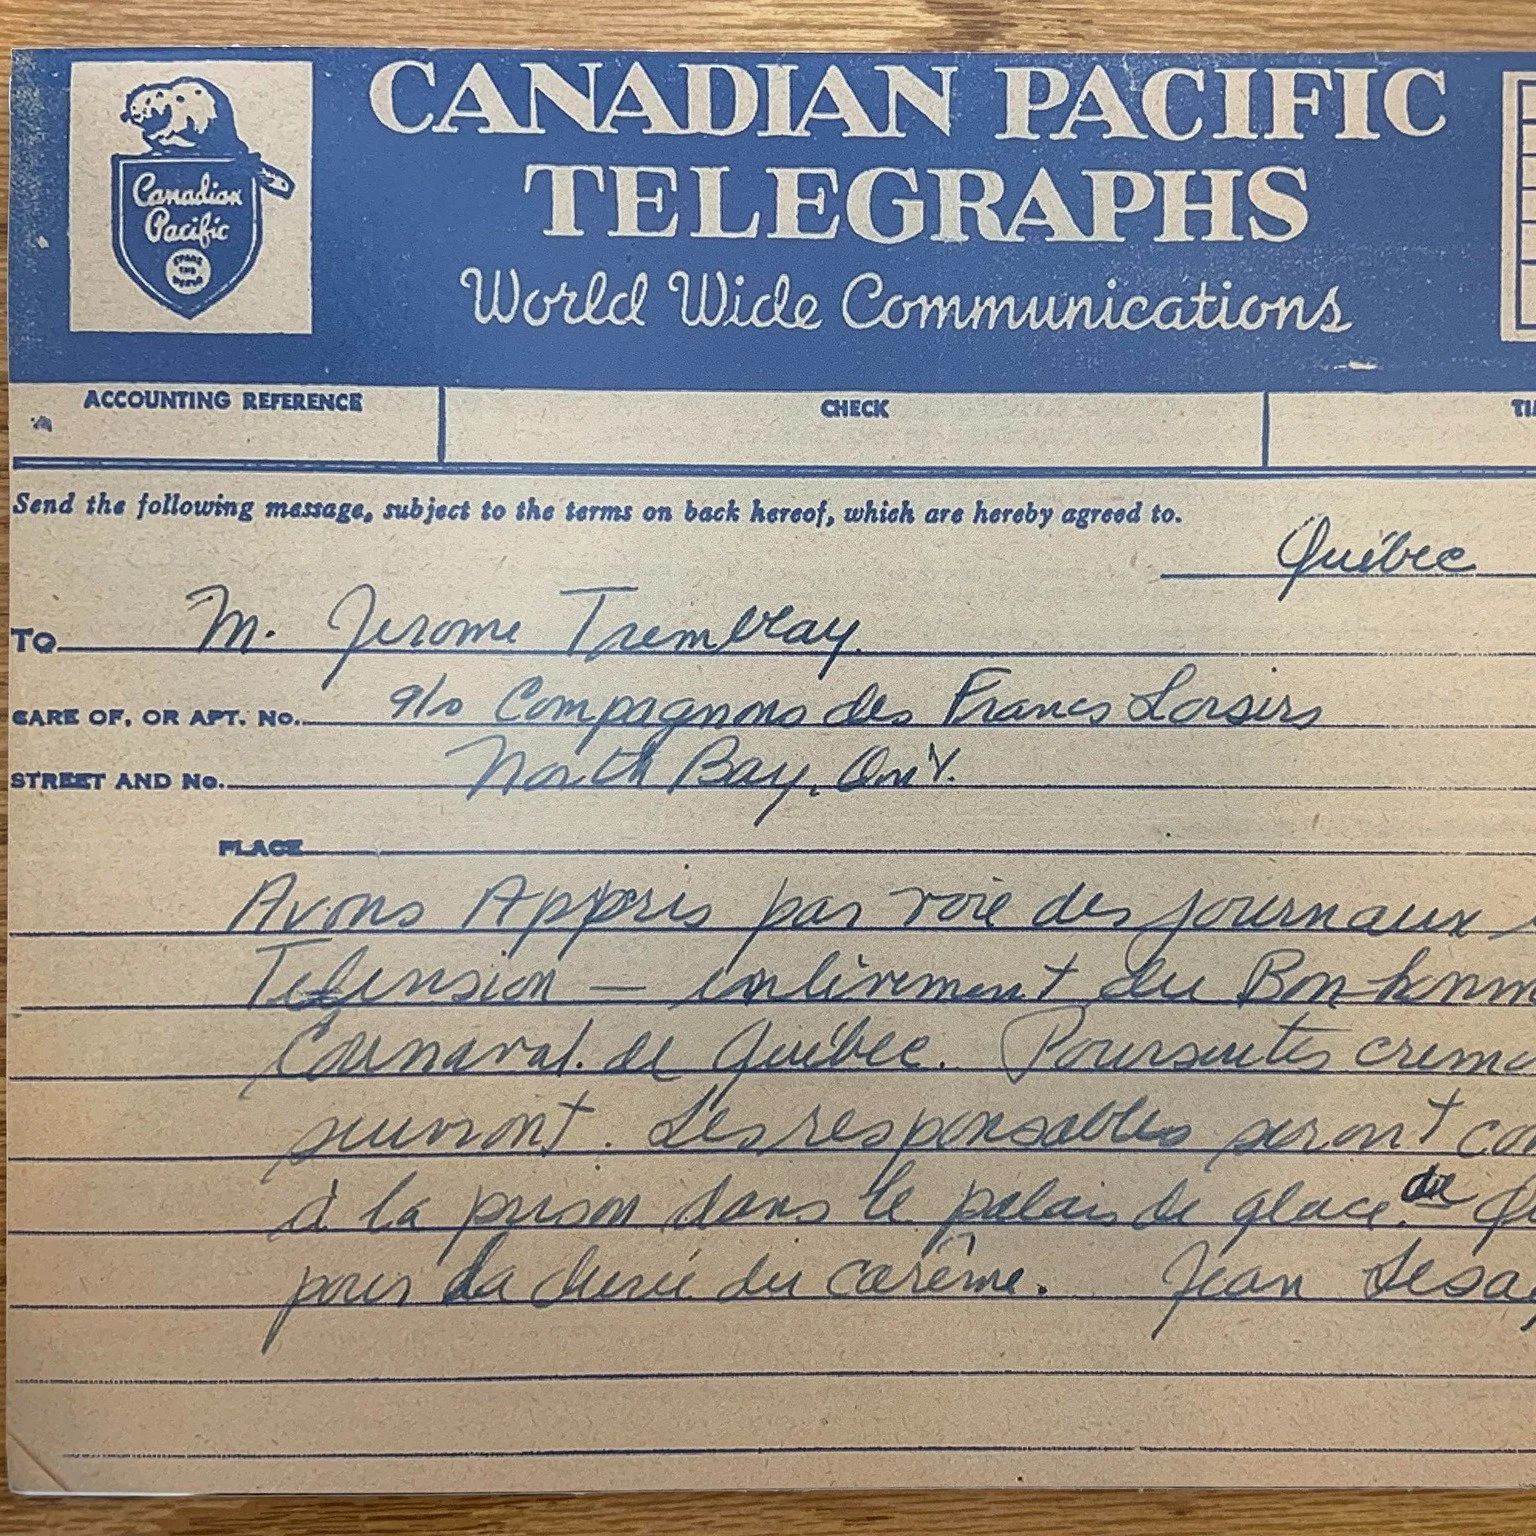 CANADIAN PACIFIC
TELEGRAPHS
World Wide Communications
Canadian
Pacific
SPANS
THE
WORLD
ACCOUNTING REFERENCE
CHECK
Send the following message, subject to the terms on back hereof, which are hereby agreed to.
Québec
TO M. Jerome Tremblay
CARE OF, OR APT. No. c/o Compagnons des Francs Loisirs
STREET AND No. North Bay, Ont.
PLACE
Avons Appris par voie des journaux
Television — enlèvement du Bonhomm
Carnaval de Québec. Poursuites
suivront. Les responsables seront con
à la prison dans le palais de glace du
pour la durée du carême. Jean Lesa